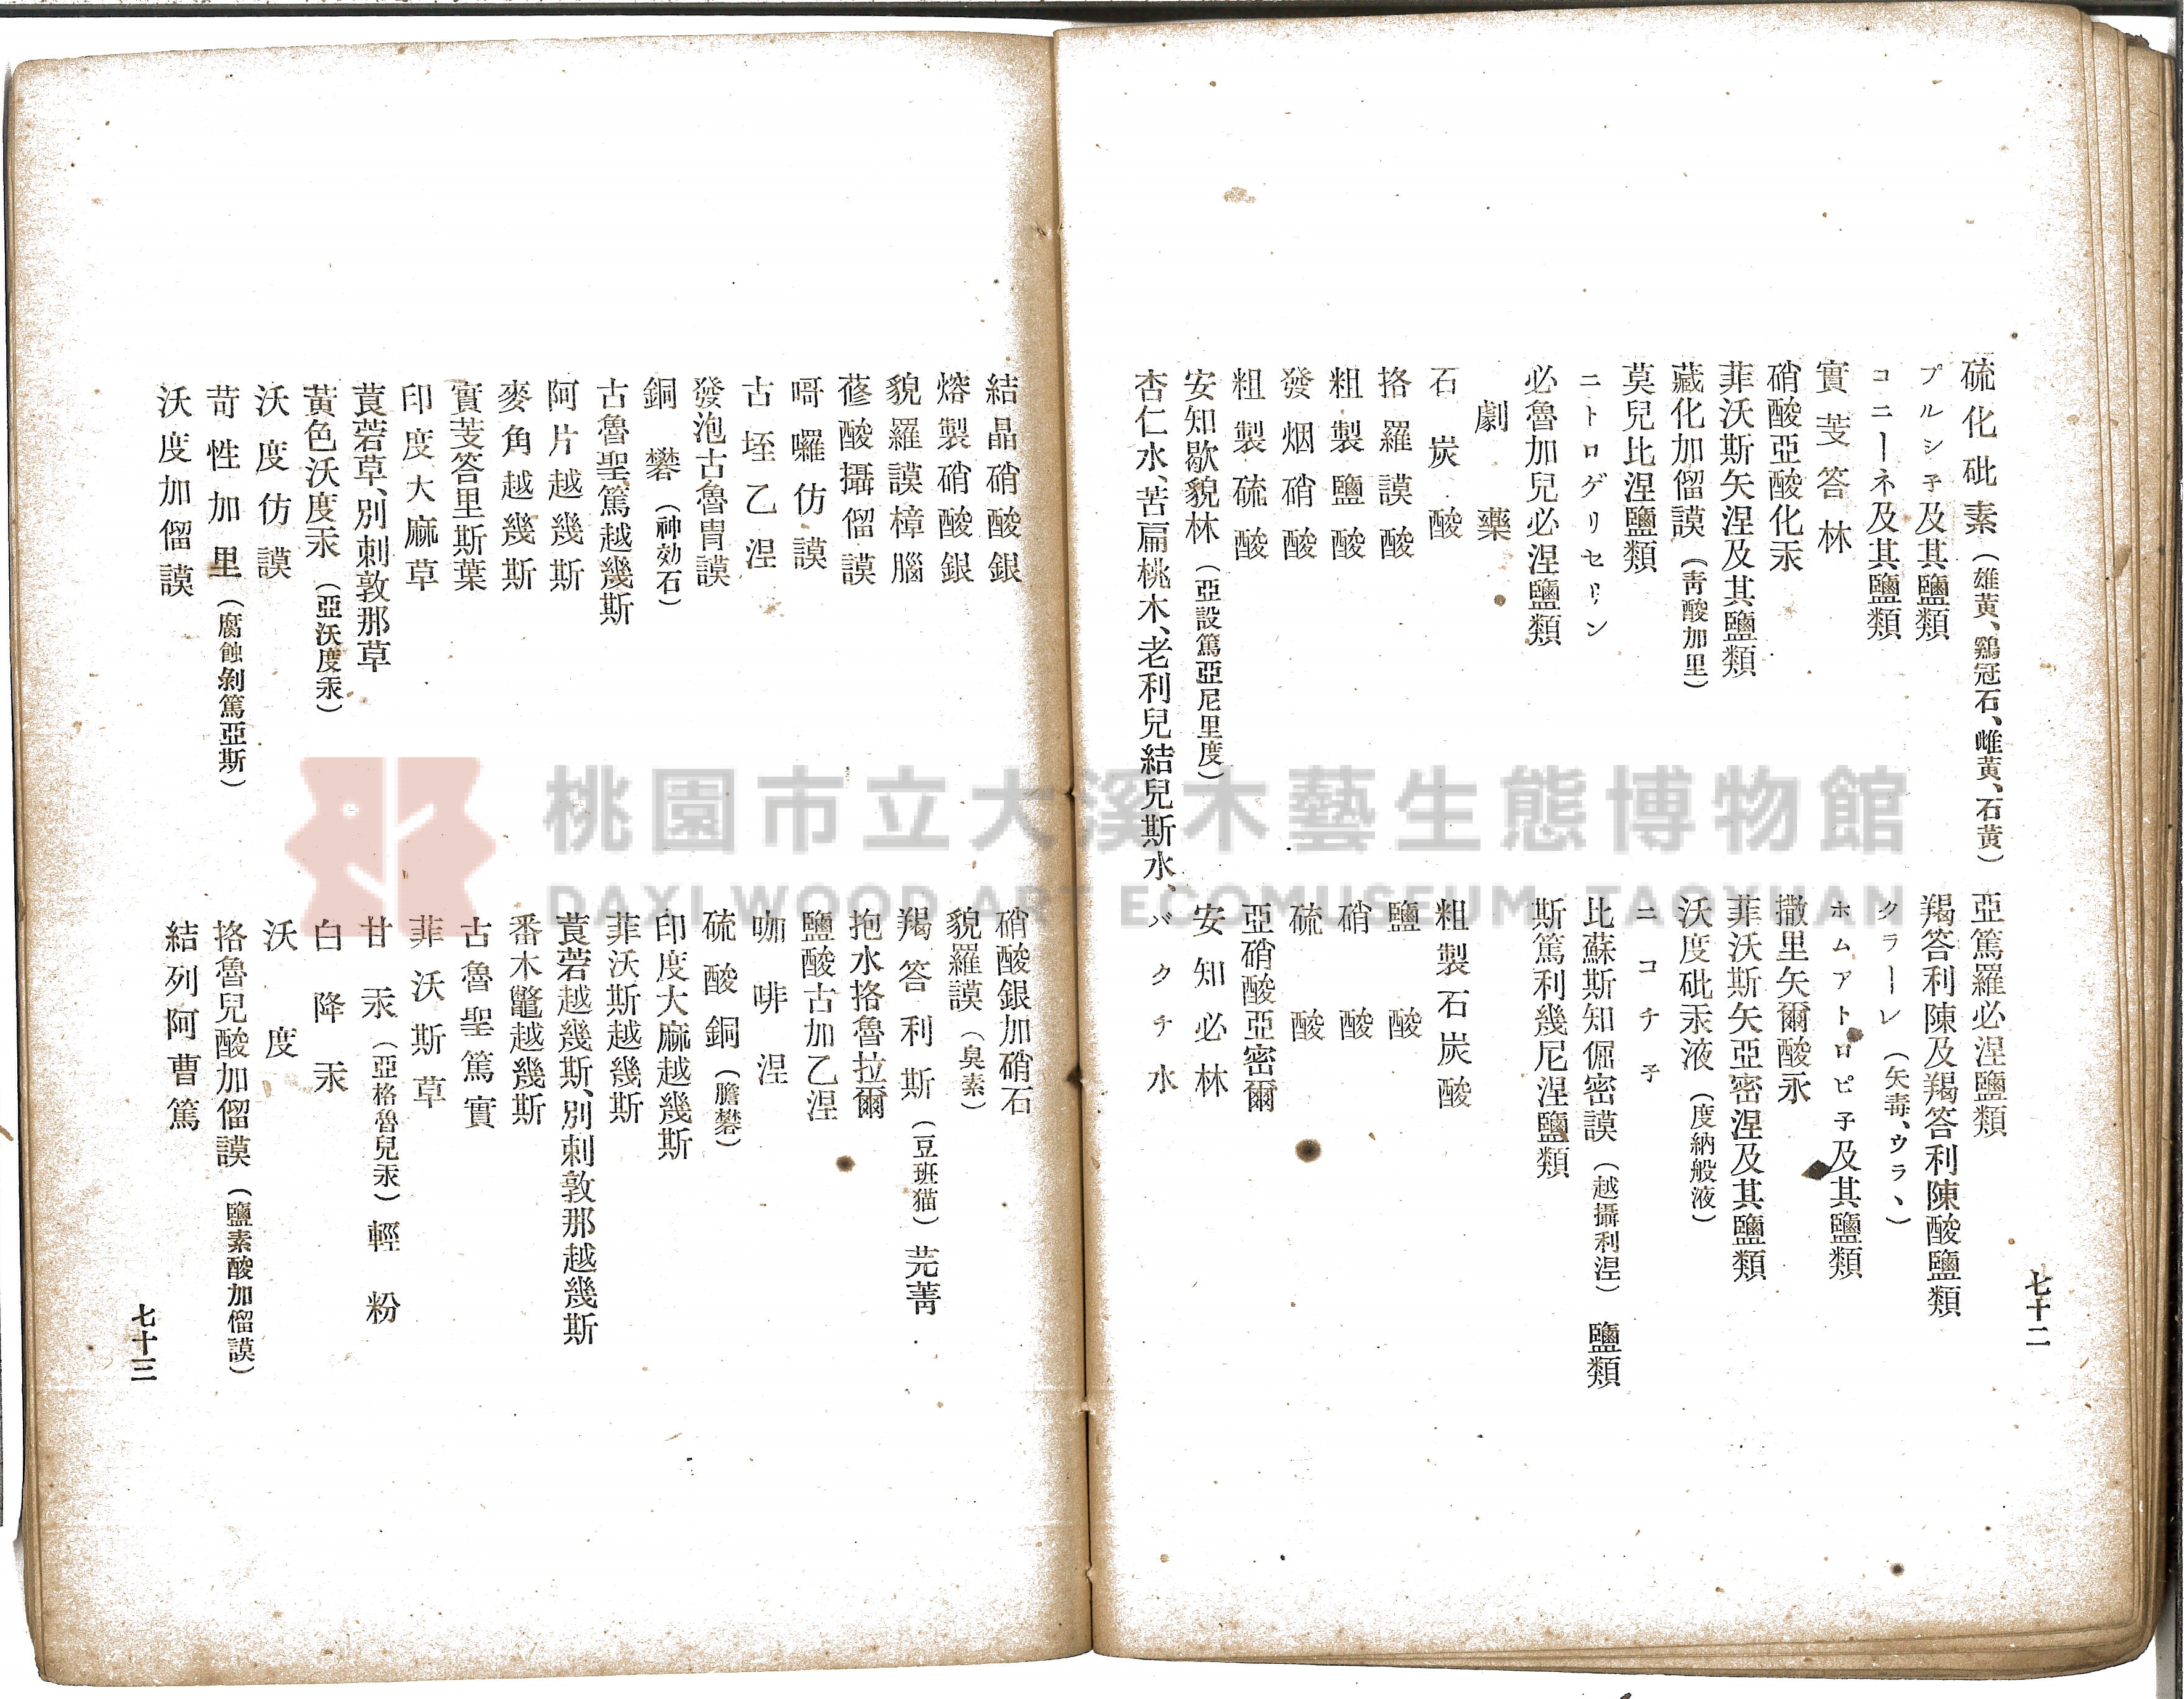 硫化砒素（雄黃、鷄冠石、雌黃、石黃）　亞篤羅必涅鹽類
プルシ子及其鹽類　羯答利陳及羯答利陳酸鹽類
コニーネ及其鹽類　クラーレ（矢毒、ウラヽ）
實芰答林　ホムアトロピ子及其鹽類
硝酸亞酸化汞　撒里矢爾酸永
菲沃斯矢涅及其鹽類　菲沃斯矢亞密涅及其鹽類
藏化加㗚謨（靑酸加里）　沃度砒汞液（度納般液）
莫兒比涅鹽類　ニコチ子
ニトログリセリン　比蘇斯知倔密謨（越攝利涅）鹽類
必魯加兒必涅鹽類　斯篤利幾尼涅鹽類
劇藥
石炭酸　粗製石炭酸
挌羅謨酸　鹽酸
粗製鹽酸　硝酸
發烟硝酸　硫酸
粗製硫酸　亞硝酸亞密爾
安知歇貌林（亞設篤亞尼里度）　安知必林
杏仁水、苦扁桃木、老利兒結兒斯水、バクチ水
七十二
結晶硝酸銀　硝酸銀加硝石
熔製硝酸銀　貌羅謨（臭素）
貌羅謨樟腦　羯答利斯（豆班猫）芫菁
蓚酸攝㗚謨　抱水挌魯拉爾
哥囉仿謨　鹽酸古加乙涅
古垤乙涅　咖啡涅
發泡古魯胄謨　硫酸銅（膽礬）
銅礬（神効石）　印度大麻越幾斯
古魯聖篤越幾斯　菲沃斯越幾斯
阿片越幾斯　莨菪越幾斯、別刺敦那越幾斯
麥角越幾斯　番木鼈越幾斯
實芰答里斯葉　古魯聖篤實
印度大麻草　菲沃斯草
莨菪草、別刺敦那草　甘汞（亞格魯兒汞）輕粉
黃色沃度汞（亞沃度汞）　白降汞
沃度仿謨　沃度
苛性加里（腐蝕剝篤亞斯）　挌魯兒酸加㗚謨（鹽素酸加㗚謨）
沃度加㗚謨　結列阿曹篤
七十三
桃園市立大溪木藝生態博物館
DAXI WOOD ART ECOMUSEUM, TAOYUAN